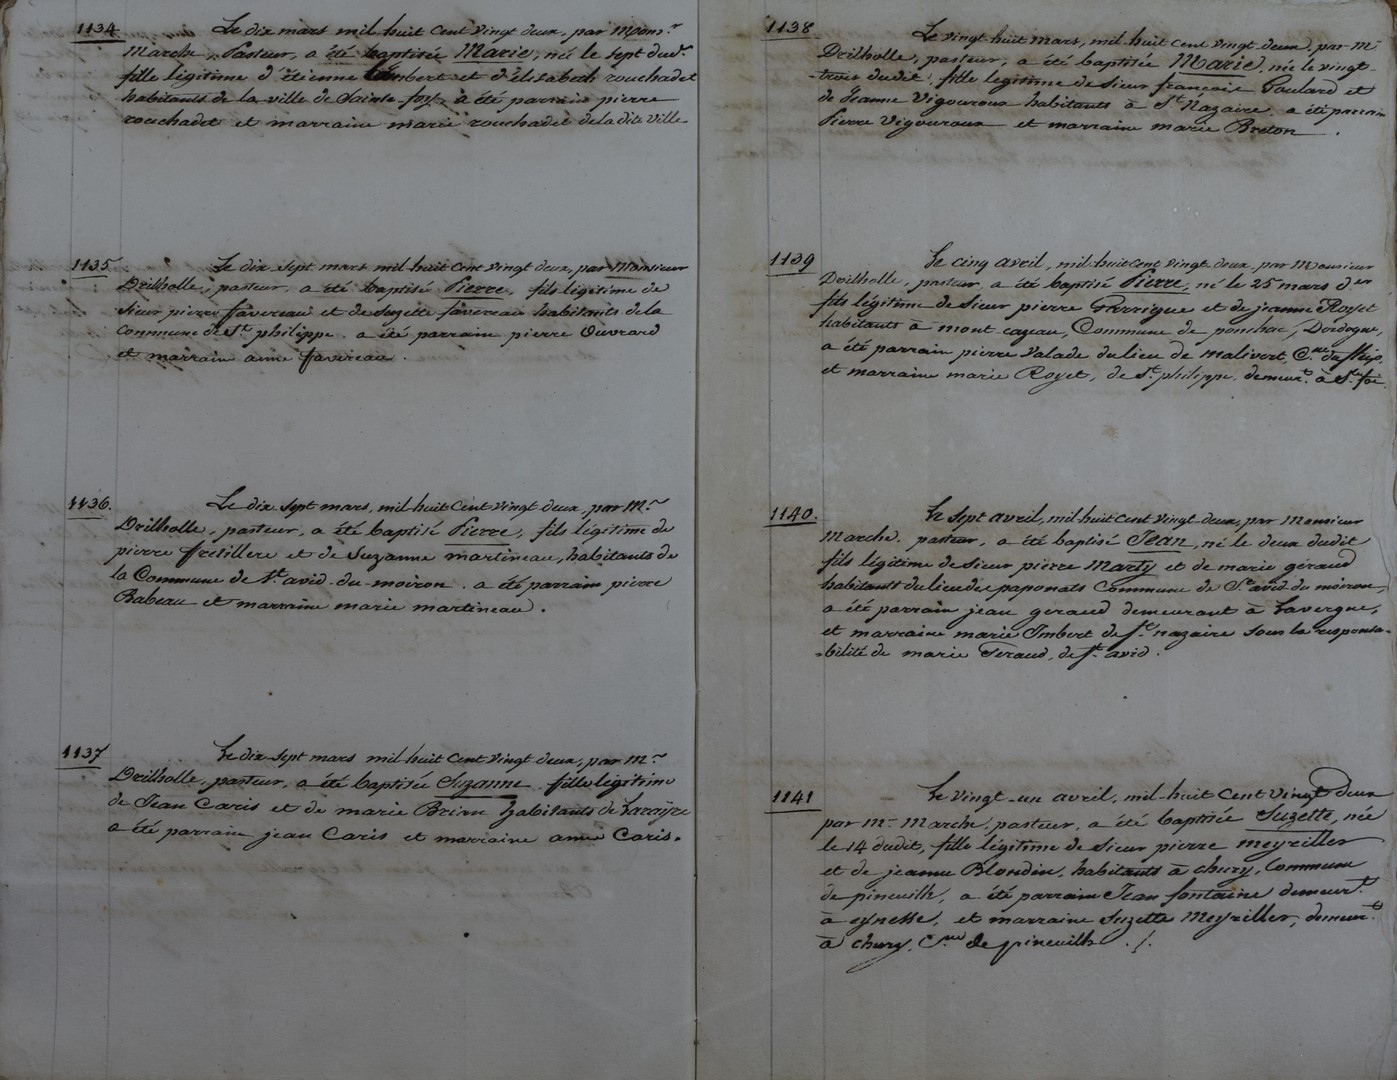 1134
Le dix mars mil huit cent vingt deux, par Mons.r
Marche, Pasteur, a été baptisée Marie, née le sept dud.t
fille légitime d'étienne imbert et d'élisabeth rouchadet
habitants de la ville de Sainte foy, a été parrain pierre
rouchadet et marraine marie rouchadet de la dite ville
1135
Le dix sept mars mil huit cent vingt deux, par Monsieur
Drilholle, pasteur, a été baptisé Pierre, fils légitime de
Sieur pierre favereau et de Suzette favereau habitants de la
Commune de St philippe. a été parrain pierre Ouvrard
et marrain anne favereau.
1136.
Le dix sept mars, mil huit cent vingt deux, par Mr
Drilholle, pasteur, a été baptisé Pierre, fils légitime de
pierre fretillere et de Suzanne martineau, habitants de
la Commune de St avid du moiron. a été parrain pierre
Babeau et marraine marie martineau.
1137
Le dix sept mars mil huit cent vingt deux, par Mr
Drilholle, pasteur, a été baptisée Suzanne fille légitime
de Jean Caris et de marie Brian habitants de
a été parrain jean Caris et marraine anne Caris.
1138
Le vingt huit mars, mil huit cent vingt deux, par Mr
Drilholle, pasteur, a été baptisée Marie, née le vingt-
-trois dudit, fille légitime de Sieur françois Goulard et
de Jeanne Vigouroux habitants à St Nazaire. a été parrain
Pierre Vigouroux et marraine marie Breton.
1139
Le cinq avril, mil huit cent vingt deux, par Monsieur
Drilholle, pasteur, a été baptisé Pierre, né le 25 mars d.er
fils légitime de Sieur pierre Garrigue et de jeanne Royet
habitants à mont cazeau, Commune de ponchac, Dordogne,
a été parrain pierre Valade du lieu de malivert, C.ne du
et marraine marie Royet, de St philippe, demeur.t à Ste foi.
1140.
Le Sept avril, mil huit cent vingt deux, par Monsieur
Marche, pasteur, a été baptisé Jean, né le deux dudit
fils légitime de Sieur pierre Marty et de marie géraud
habitants du lieu des paponats Commune de St avid du moiron,
a été parrain jean geraud demeurant à Lavergne,
et marraine marie Imbert de St nazaire sous la responsa-
-bilité de marie Géraud, de St avid.
1141
Le vingt-un avril, mil huit cent vingt deux
par Mr Marche, pasteur, a été baptisée Suzette, née
le 14 dudit, fille légitime de Sieur pierre meyriller
et de jeanne Blondin, habitants à chury, Commune
de pineuilh, a été parrain Jean fontaine demeur.t
à eynesse, et marraine Suzette Meyriller, demeur.t
à chury, C.ne de pineuilh ./.